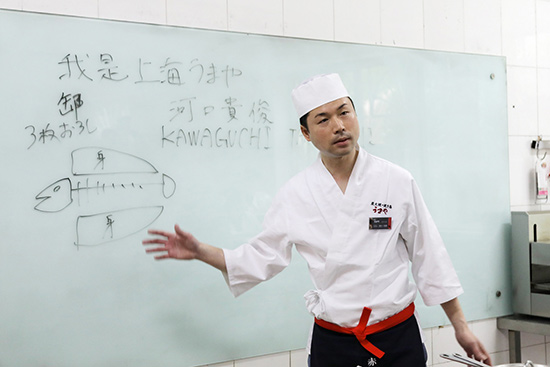 我是上海うまや
卸
河口貴俊
3枚おろし
KAWAGUCHI T
身
身
うまや
赤